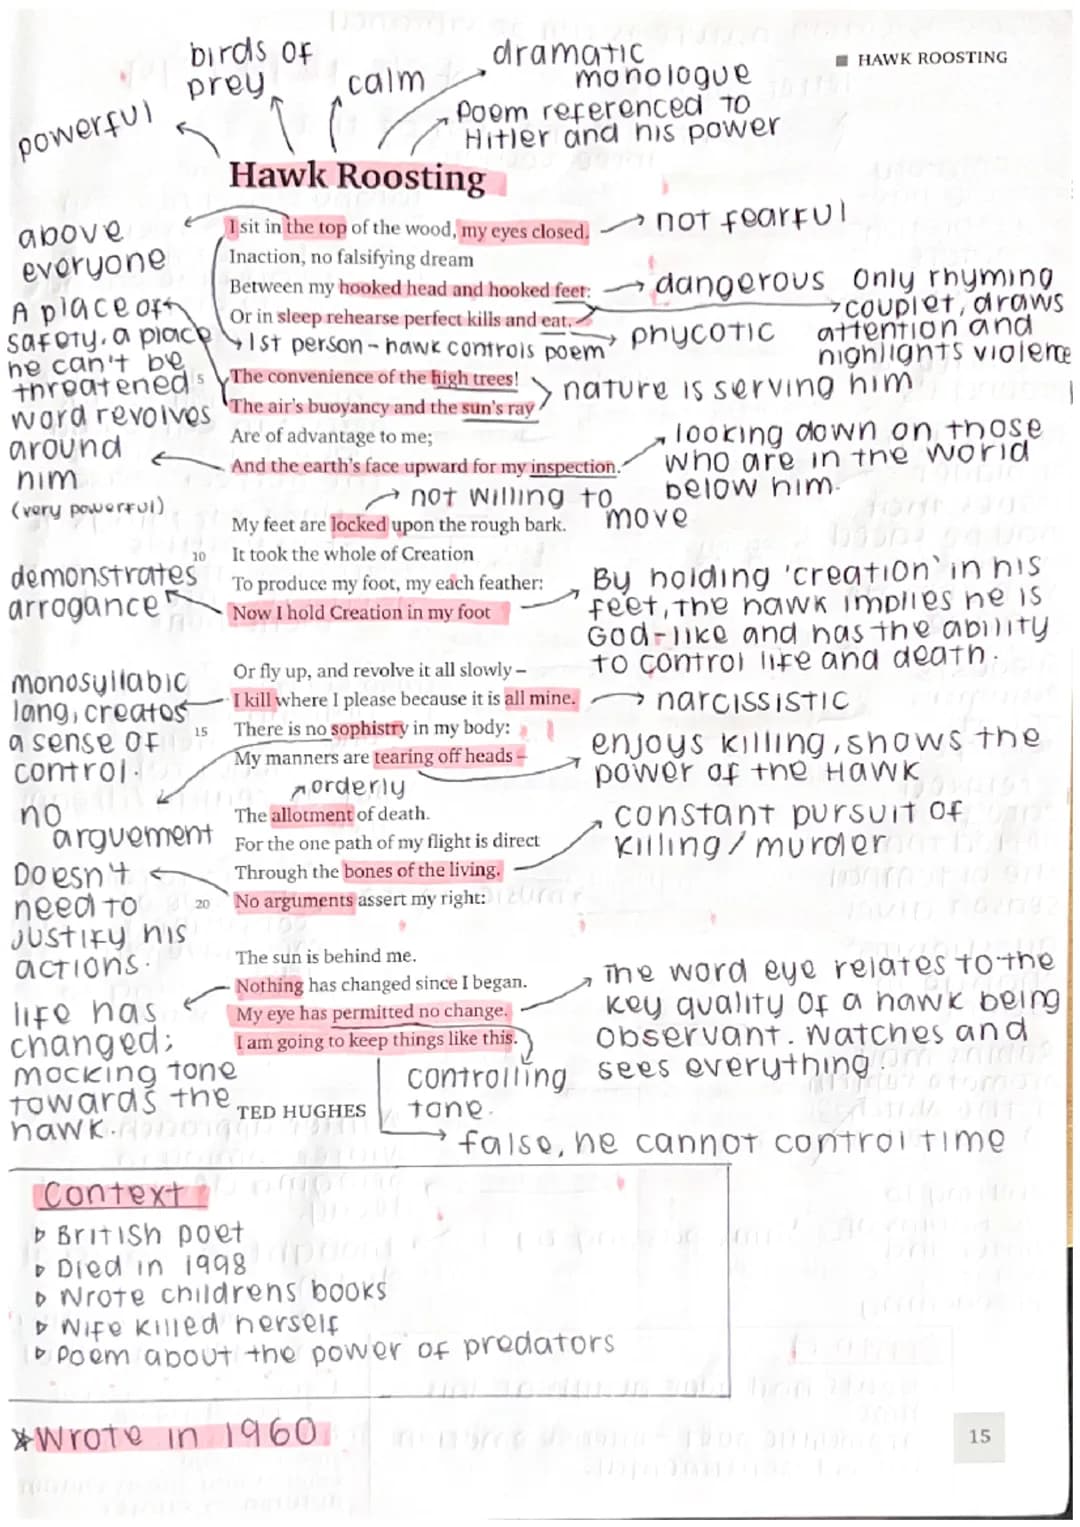 HAWK ROOSTING
birds of
prey
calm
dramatic
monologue
powerful
Poem referenced to
Hitler and his power
Hawk Roosting
above
everyone
I sit in the top of the wood, my eyes closed.
not fearful
Inaction, no falsifying dream
Between my hooked head and hooked feet:
dangerous
Only rhyming
couplet, draws
attention and
highlights violence
Or in sleep rehearse perfect kills and eat.
phycotic
1st person - hawk controls poem
A place of
safety, a place
he can't be
threatened
5
The convenience of the high trees!
The air's buoyancy and the sun's ray
nature is serving him
Are of advantage to me;
And the earth's face upward for my inspection.
word revolves
around
him
(very powerful)
looking down on those
who are in the world
below him.
not willing to
move
My feet are locked upon the rough bark.
10
It took the whole of Creation
To produce my foot, my each feather:
Now I hold Creation in my foot
demonstrates
arrogance
By holding 'creation' in his
feet, the hawk implies he is
God-like and has the ability
to control life and death.
Or fly up, and revolve it all slowly –
I kill where I please because it is all mine.
narcissistic
monosyllabic
lang, creates
a sense of
control.
15
There is no sophistry in my body:
My manners are tearing off heads –
enjoys killing, shows the
power of the Hawk
no
arguement
orderly
The allotment of death.
For the one path of my flight is direct
Through the bones of the living.
constant pursuit of
killing/murder
20
No arguments assert my right:
Doesn't
need to
justify his
actions.
The sun is behind me.
Nothing has changed since I began.
My eye has permitted no change.
I am going to keep things like this.
The word eye relates to the
key quality of a hawk being
observant. Watches and
sees everything.
life has
changed;
mocking tone
towards the
hawk.
controlling
tone.
TED HUGHES
false, he cannot control time
Context
British poet
Died in 1998
Wrote childrens books
Wife killed herself
Poem about the power of predators
*Wrote in 1960
15